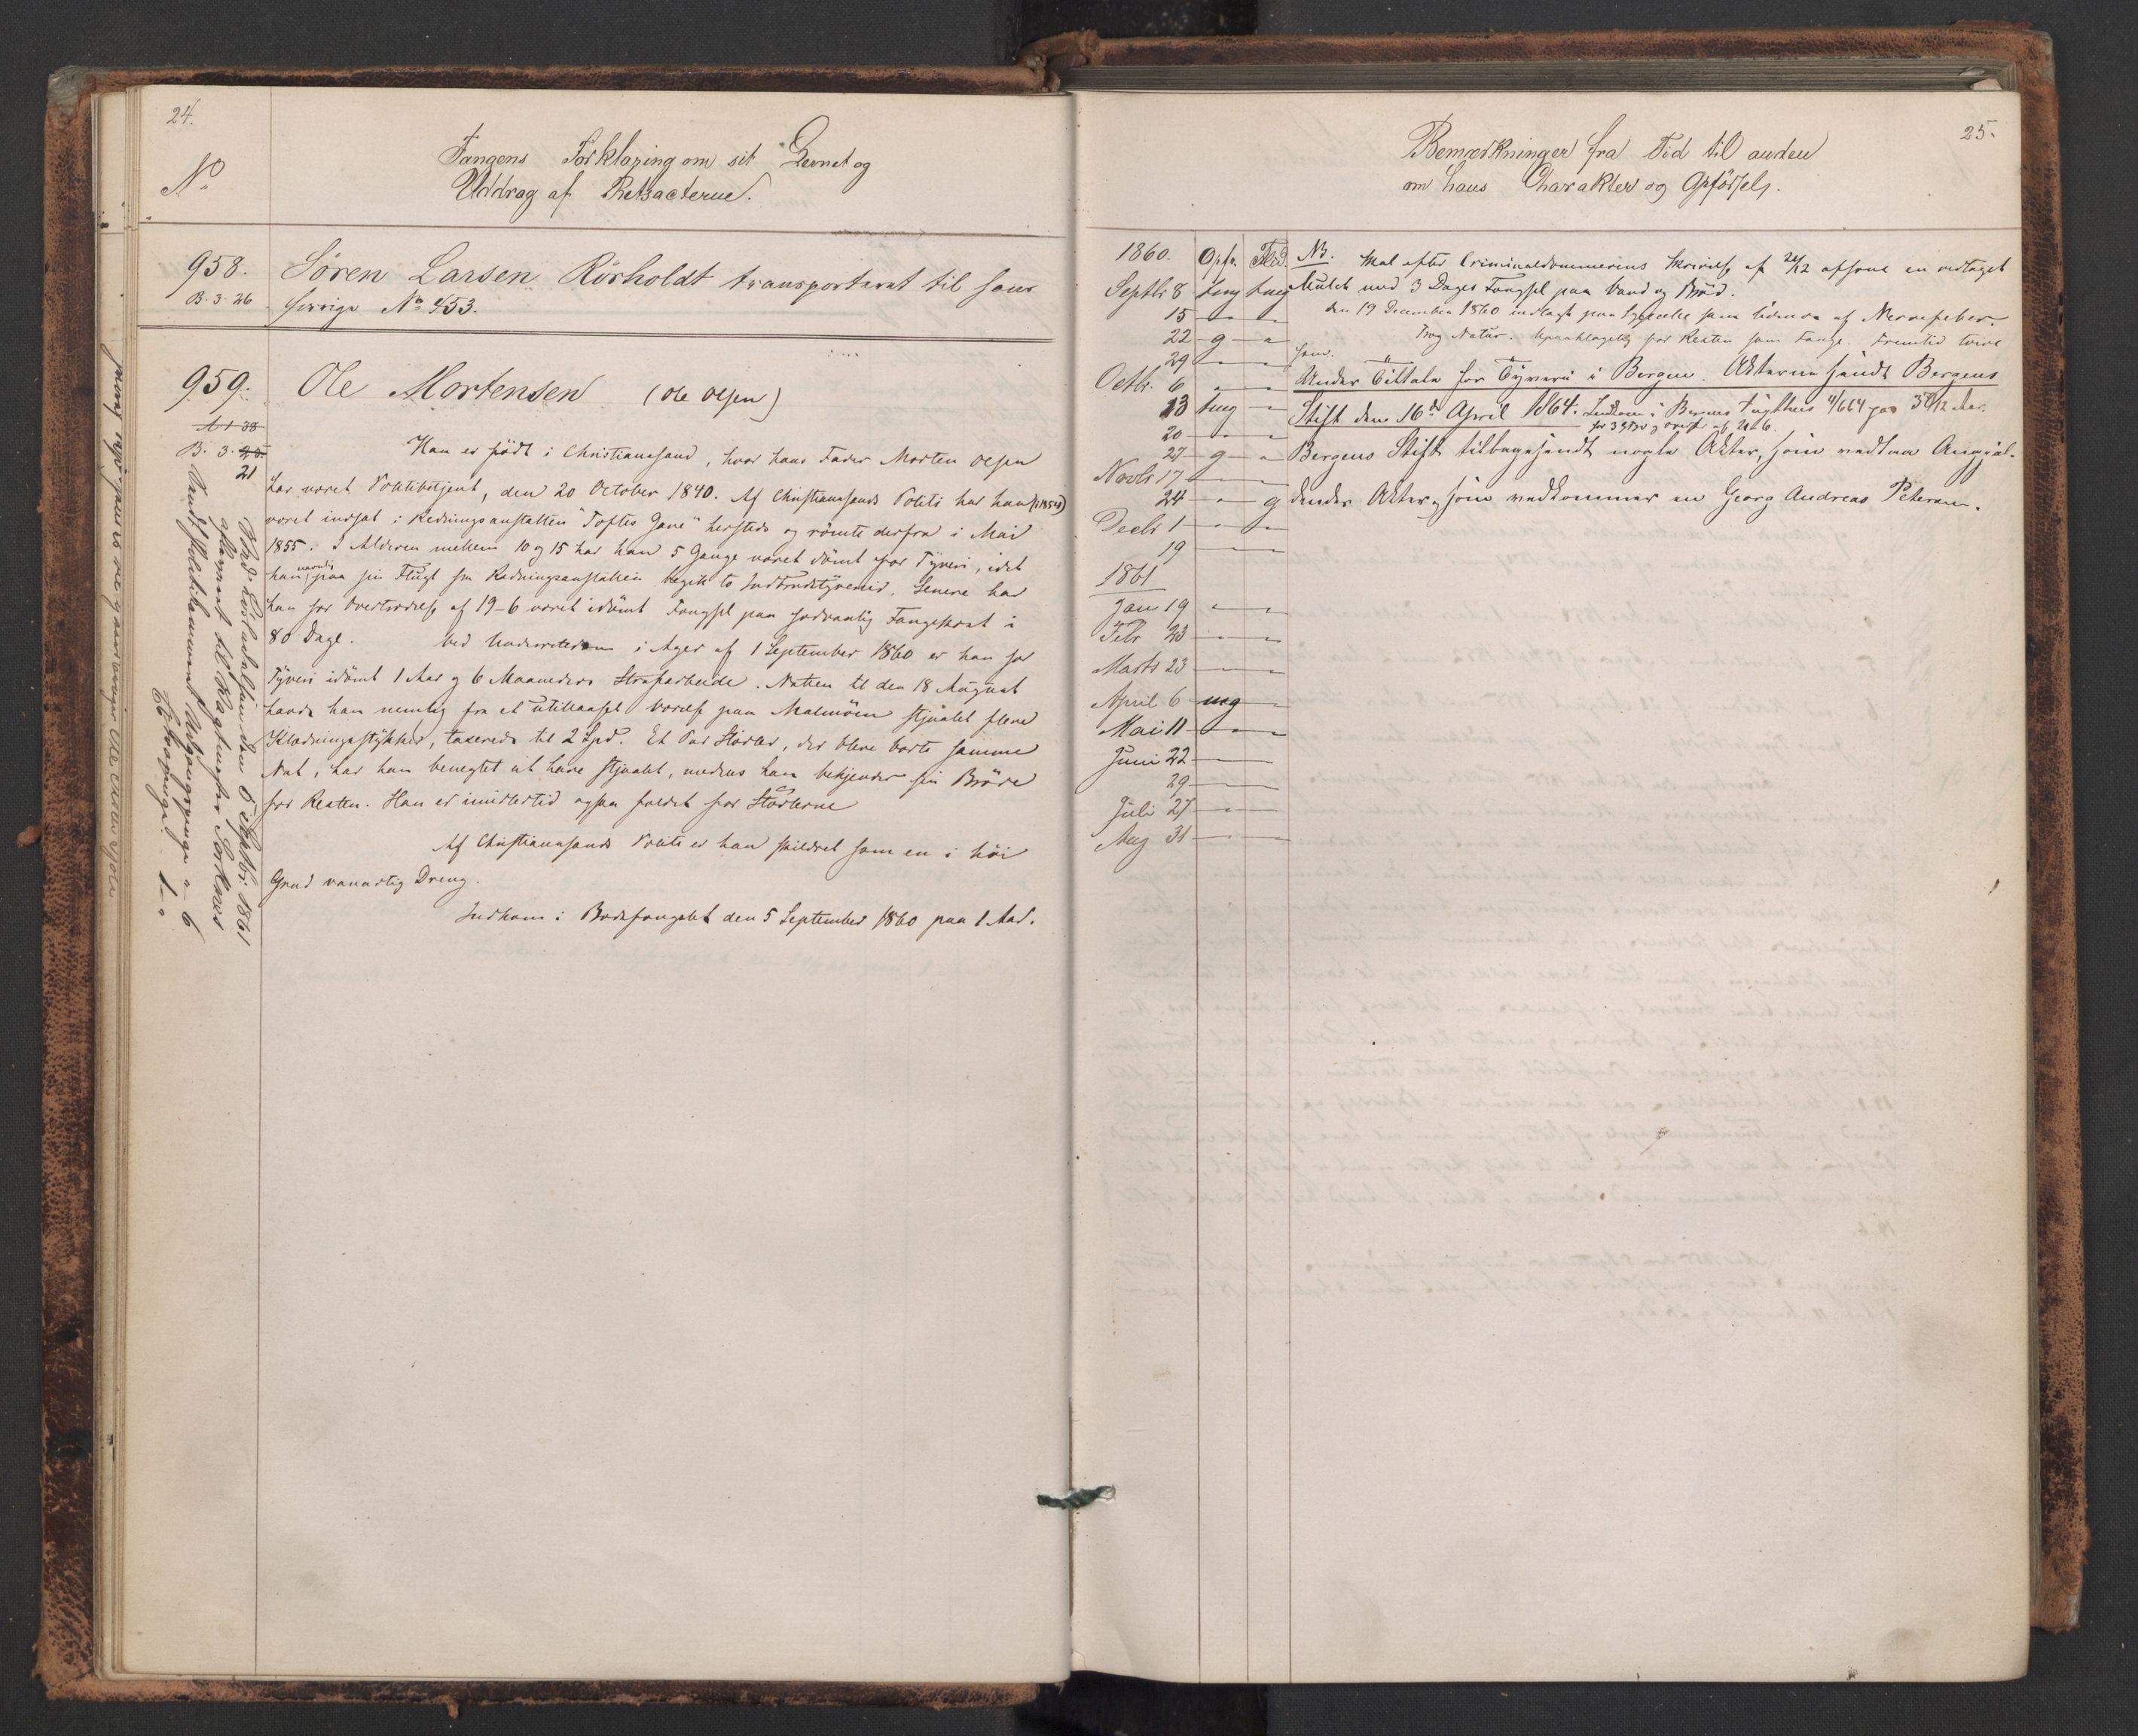 24.
No
Fangens Forklaring om sit Levnet og
Uddrag af Retsacterne.
958. Sören Larsen Rörholdt transporteret til hans
B. 3. 26 forrige No 453.
959. Ole Mortensen (Ole Olsen)
A 1 38
B. 3. 25
21
Han er födt i Christianssand, hvor hans Fader Morten Olsen
har været Politibetjent, den 20 October 1840. Af Christianssands Politi har han
været indsat i Redningsanstalten "Toftes Gave" hersteds og römte derfra i Mai
1855. I Alderen mellem 10 og 15 har han 5 Gange været dömt for Tyveri, idet
han navnlig paa sin Flugt fra Redningsanstalten begik to Indbrudstyverier. Senere har
han for Overtrædelse af 19-6 været idömt Fængsel paa sædvanlig Fangekost i
80 Dage. Ved Underretsdom i Ager af 1 September 1860 er han for
Tyveri idömt 1 Aar og 6 Maaneders Strafarbeide. Natten til den 18 August
havde han nemlig fra et utillaaset Værelse paa Malmöen stjaalet flere
Klædningsstykker, taxerede til 2 Spd. Et Par Stövler, der bleve borte samme
Nat, har han benegtet at have stjaalet, medens han bekjender sin Bröde
for Resten. Han er imidlertid ogsaa fældet for Stövlerne
Af Christianssands Politi er han skildret som en i höi
Grad vanartig Dreng.
Indkom i Bodsfængslet den 5 September 1860 paa 1 Aar.
Ved Lösladelsen den 5 Septbr. 1861
afleveret til Vagtmester
Udgangspenge " - 6
25.
Bemærkninger fra Tid til anden
om hans Charakter og Opförsel.
1860. Opfn. Flid.
Septbr 8 tmg tmg
15 - " - "
22 - g - "
29 - " - "
Octbr. 6 - " - "
13 tmg - "
20 - " - "
27 - g - "
Novbr 17 - " - "
24 - " - g
Decbr 1 - " - "
19 - " - "
1861
Jan 19 - " - "
Febr 23 - " - "
Marts 23 - " - "
April 6 - mg - "
Mai 11 - " - "
Juni 22 - " - "
29 - " - "
Juli 27 - " - "
Aug 31 - " - "
NB. Skal efter Criminaldommerens Skrivelse af 24/12 afsone en vedtaget
Mulct med 3 Dages Fængsel paa Vand og Bröd.
den 19 December 1860 indlagt paa Sygecelle som lidende af Nervefeber.
Træg Natur. Upaaklagelig for Resten som Fange. Fremtid tvivl
som.
Under Tiltale for Tyveri i Bergen. Akterne sendt Bergens
Stift den 16de April 1864. Indkom i Bergens Tugthus 4/6 64 paa 3 6/12 Aar.
for 3 G Tyv og Overtr af 21-6.
Bergens Stift tilbagesendt nogle Akter, som vedtoge Angjæl-
dendes Akter, som vedkommer en Georg Andreas Petersen.